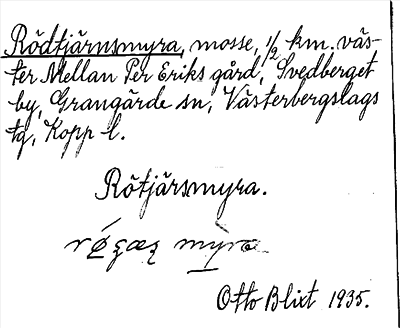 Rödtjärnsmyra, mosse, 1/2 km. väs-
ter Mellan Per Eriks gård, Svedberget
by, Grangärde sn, Västerbergslags
tg, Kopp l.
Rötjärsmyra.
Otto Blixt 1935.